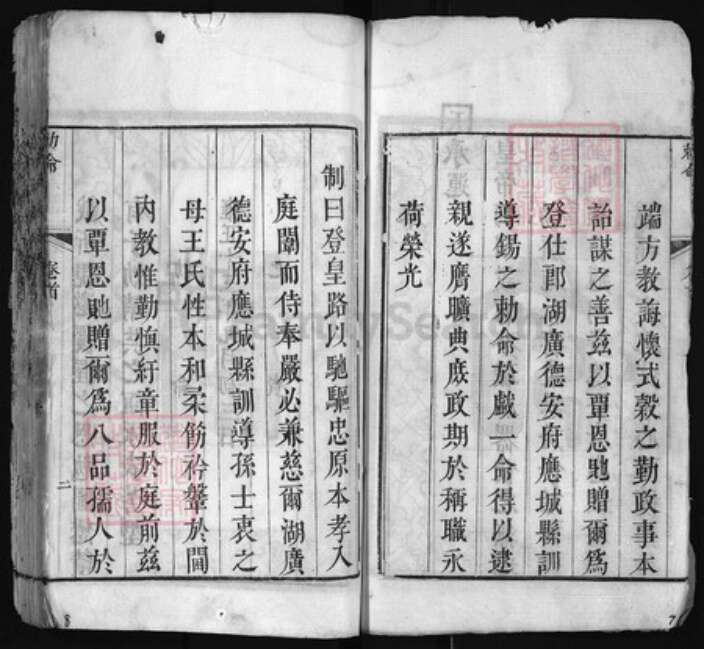 端方教誨懷式穀之勤政事本
詒謀之善茲以覃恩貤贈爾爲
登仕郎湖廣德安府應城縣訓
導錫之勅命於戲一命得以逮
親遂膺曠典庶政期於稱職永
荷榮光
勅命
7
制曰登皇路以馳驅忠原本孝入
庭闈而侍奉嚴必兼慈爾湖廣
德安府應城縣訓導孫士衷之
母王氏性本和柔飭衿鞶於閫
內教惟勤慎紆章服於庭前茲
以覃恩貤贈爾爲八品孺人於
勅命
卷首
二
8